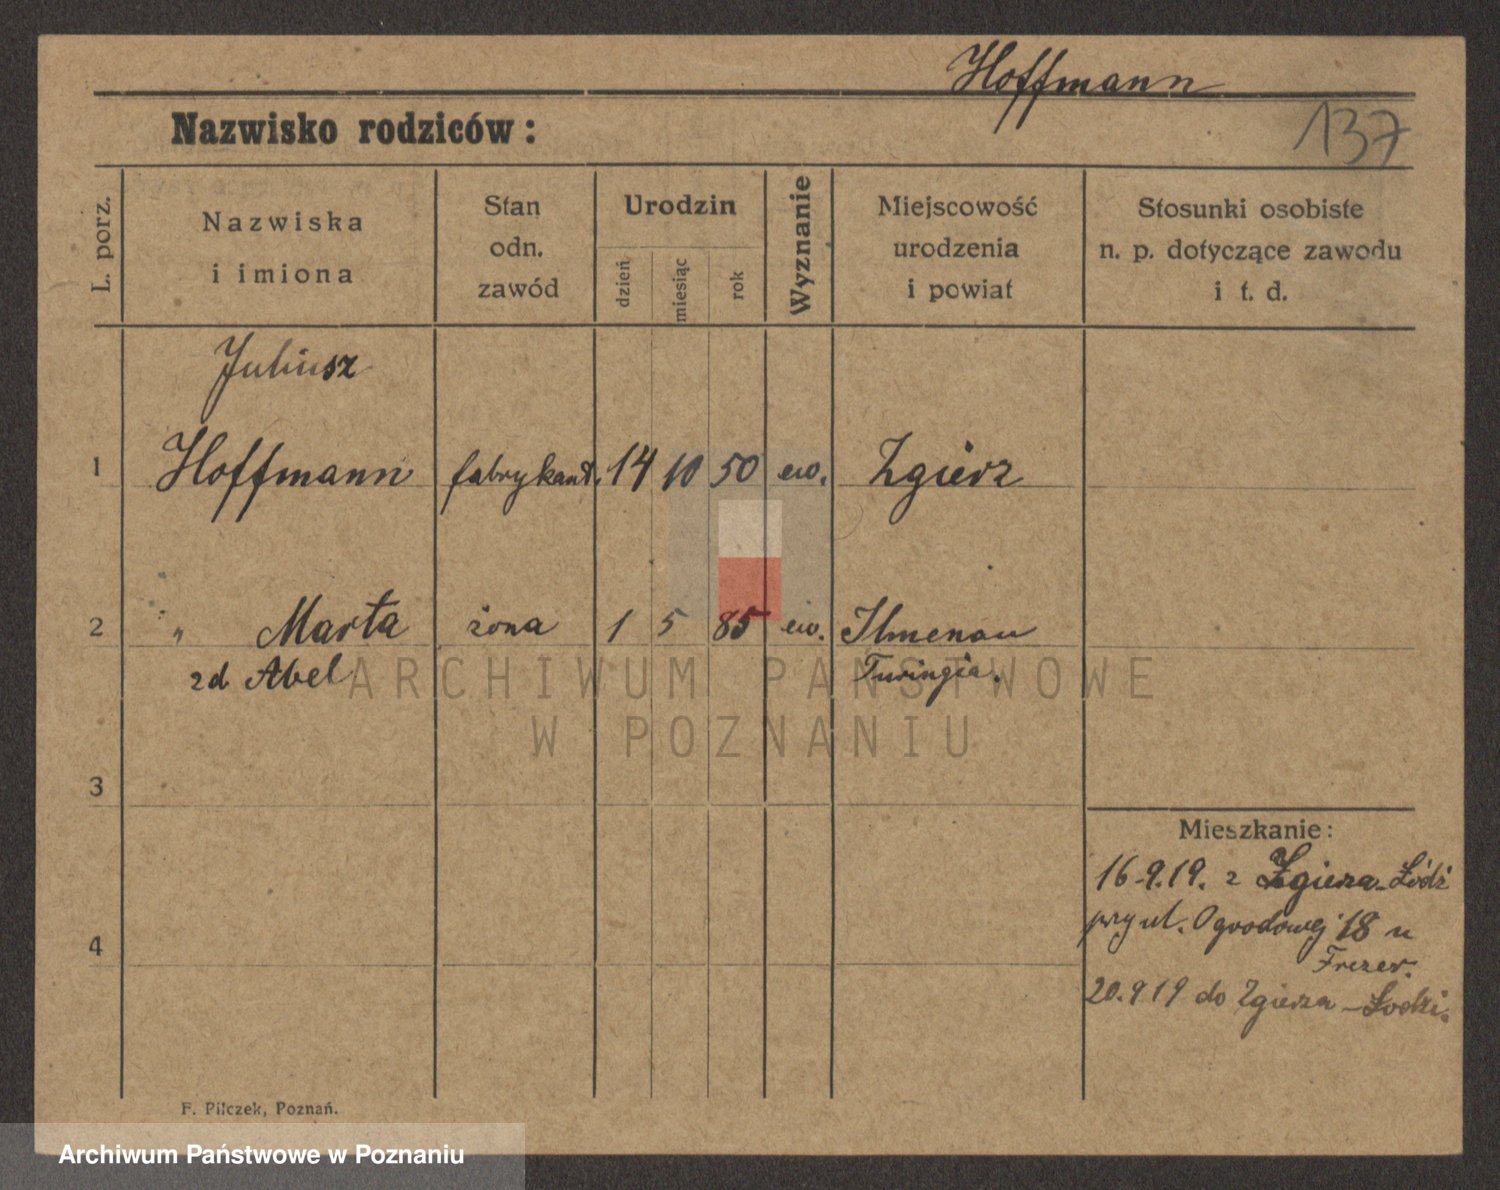 Hoffmann
Nazwisko rodziców:
137
L. porz.
Nazwiska
i imiona
Stan
odn.
zawód
Urodzin
dzień
miesiąc
rok
Wyznanie
Miejscowość
urodzenia
i powiat
Stosunki osobiste
n. p. dotyczące zawodu
i t. d.
Juliusz
1 Hoffmann fabrykant. 14 10 50 ew. Zgierz
2 " Marta żona 1 5 85 ew. Ilmenau
zd Abel Turingia.
ARCHIWUM PAŃSTWOWE
W POZNANIU
3
Mieszkanie:
16.9.19. z Zgierza-Łódź
przy ul. Ogrodowej 18 u
4
20.9.19 do Zgierza-Łodzi.
F. Pilczek, Poznań.
Archiwum Państwowe w Poznaniu